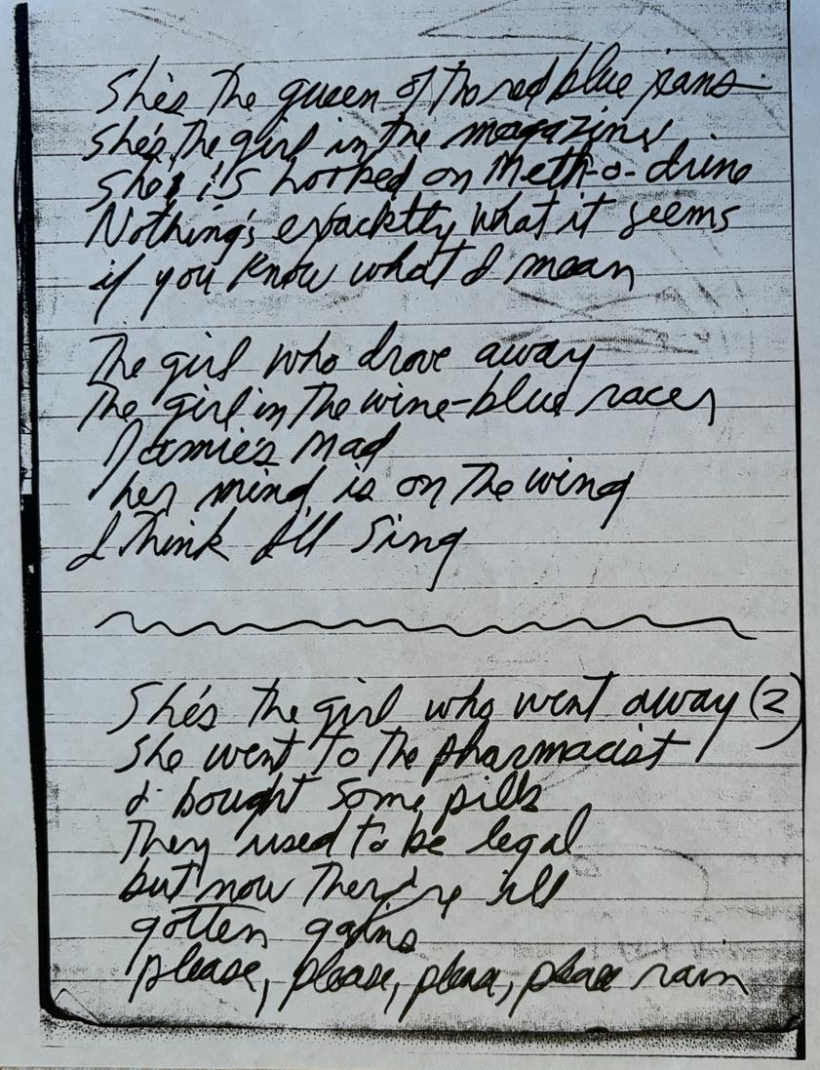 She's the queen of the red blue jeans
She's the girl in the magazine
She is hooked on Meth-o-drine
Nothing's exacktly what it seems
if you know what I mean
The girl who drove away
The girl in the wine-blue racer
Jamie's mad
her mind is on the wing
I think I'll sing
She's the girl who went away (2)
She went to the pharmacist
& bought some pills
They used to be legal
but now they're ill
gotten gains
please, please, please, please rain